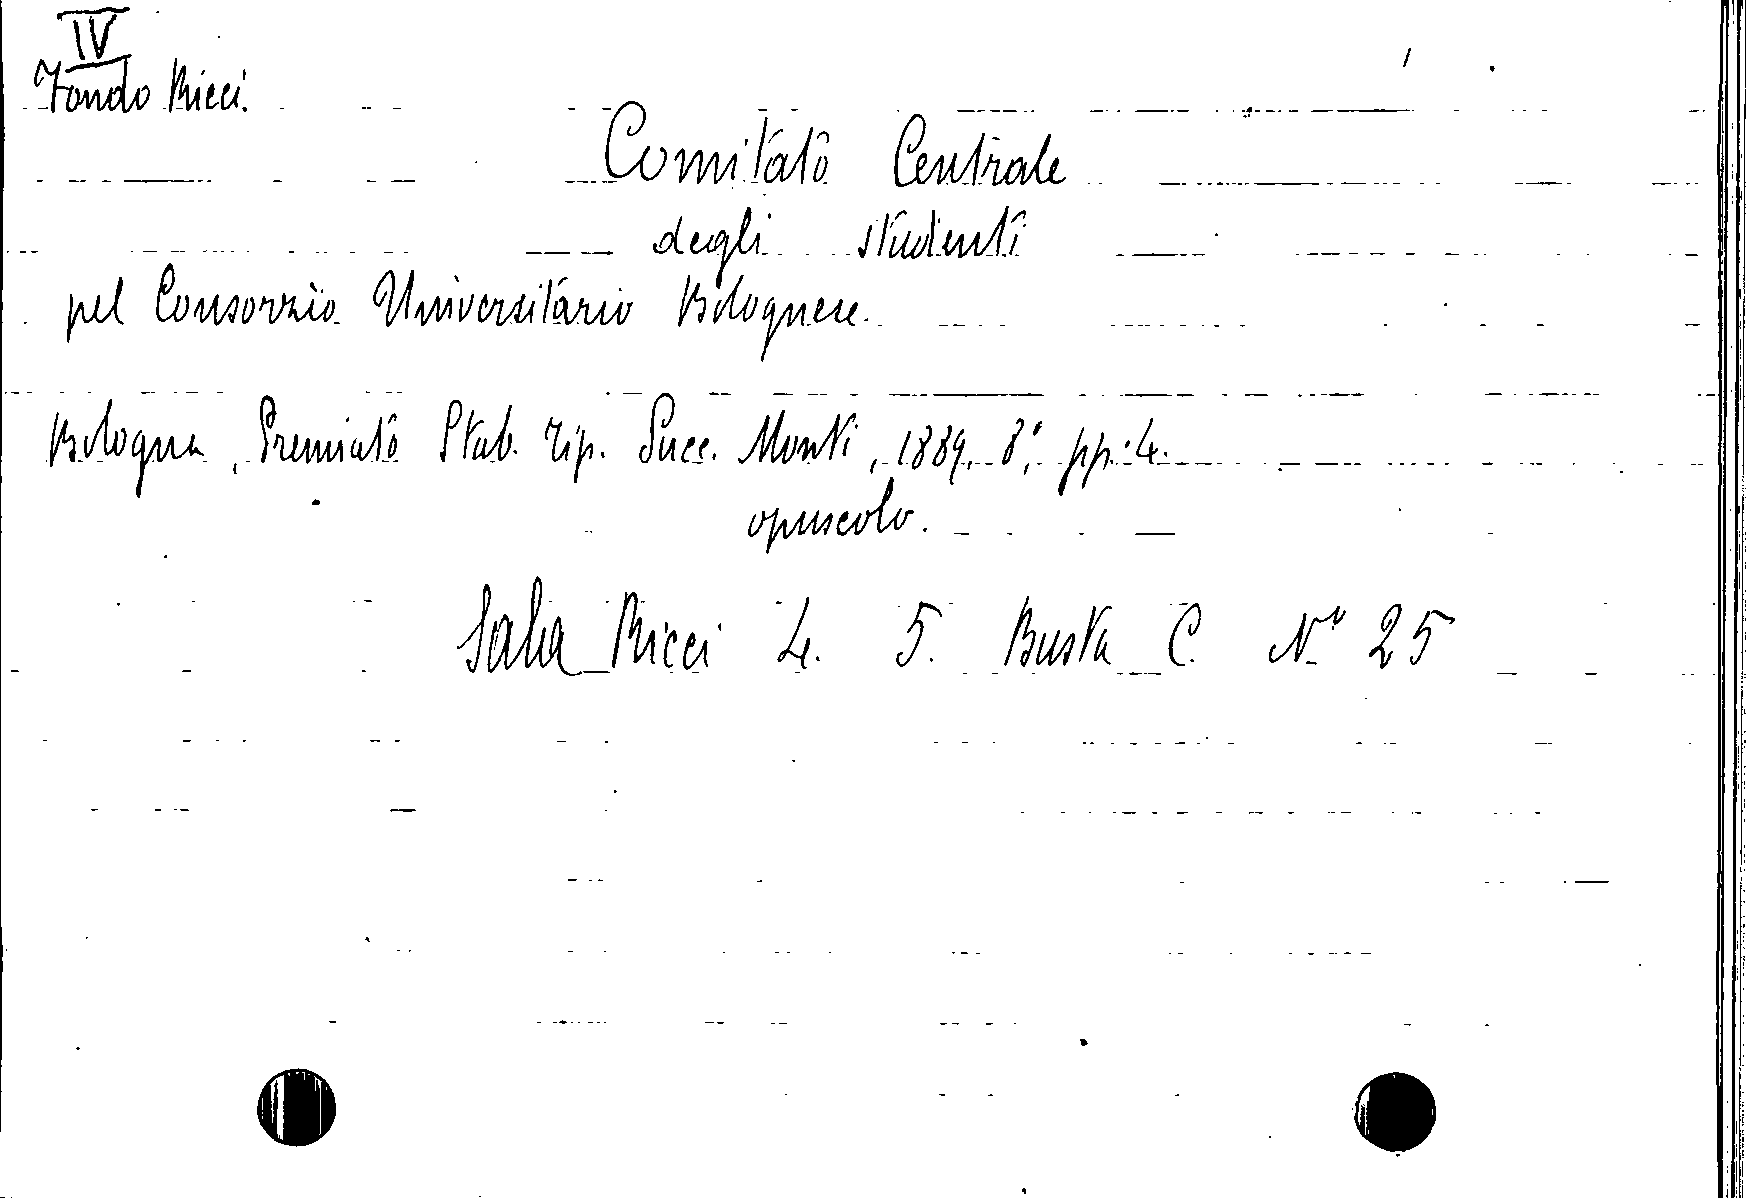 IV
Fondo Ricci.
Comitato Centrale
degli studenti
pel Consorzio Universitario Bolognese.
Bologna, Premiato Stab. Tip. Succ. Monti, 1889, 8°, pp. 4.
opuscolo.
Sala Ricci 4. 5. Busta C. N° 25